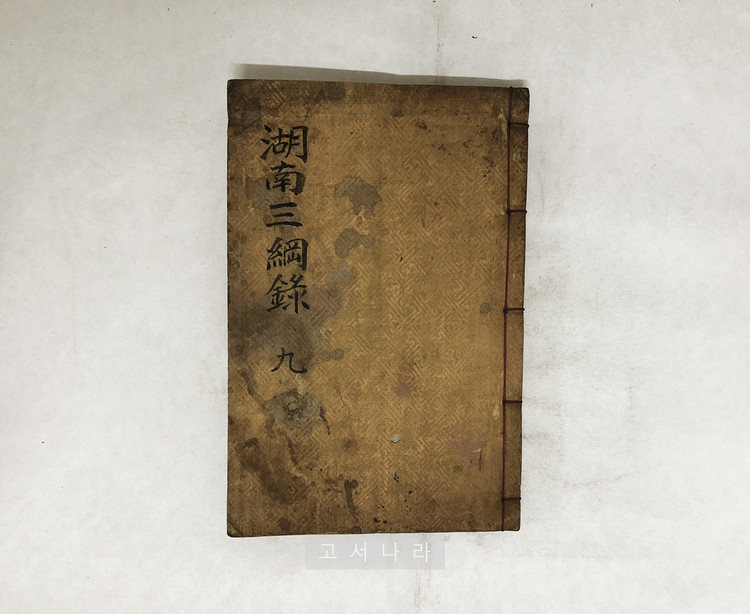 湖南三綱錄 九
고서나라